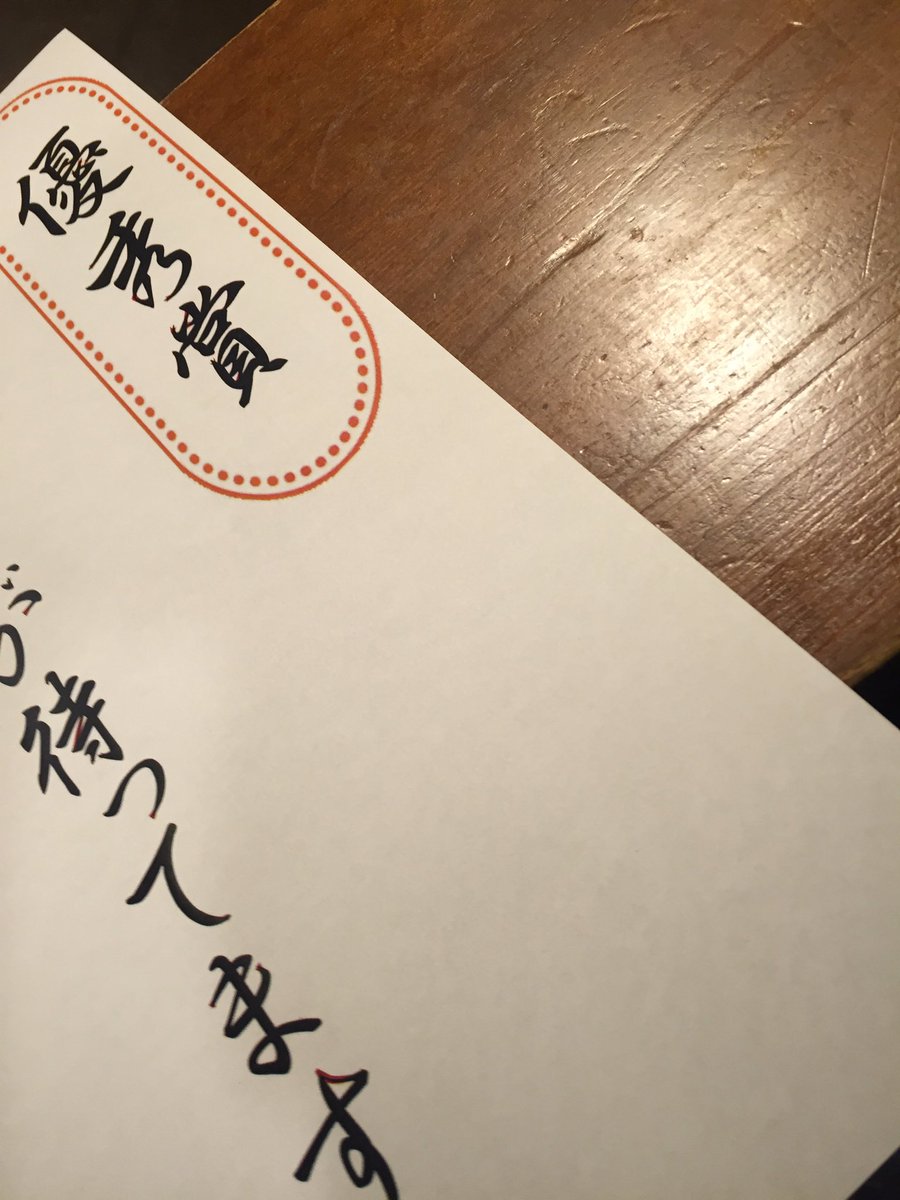 優秀賞
が待ってます